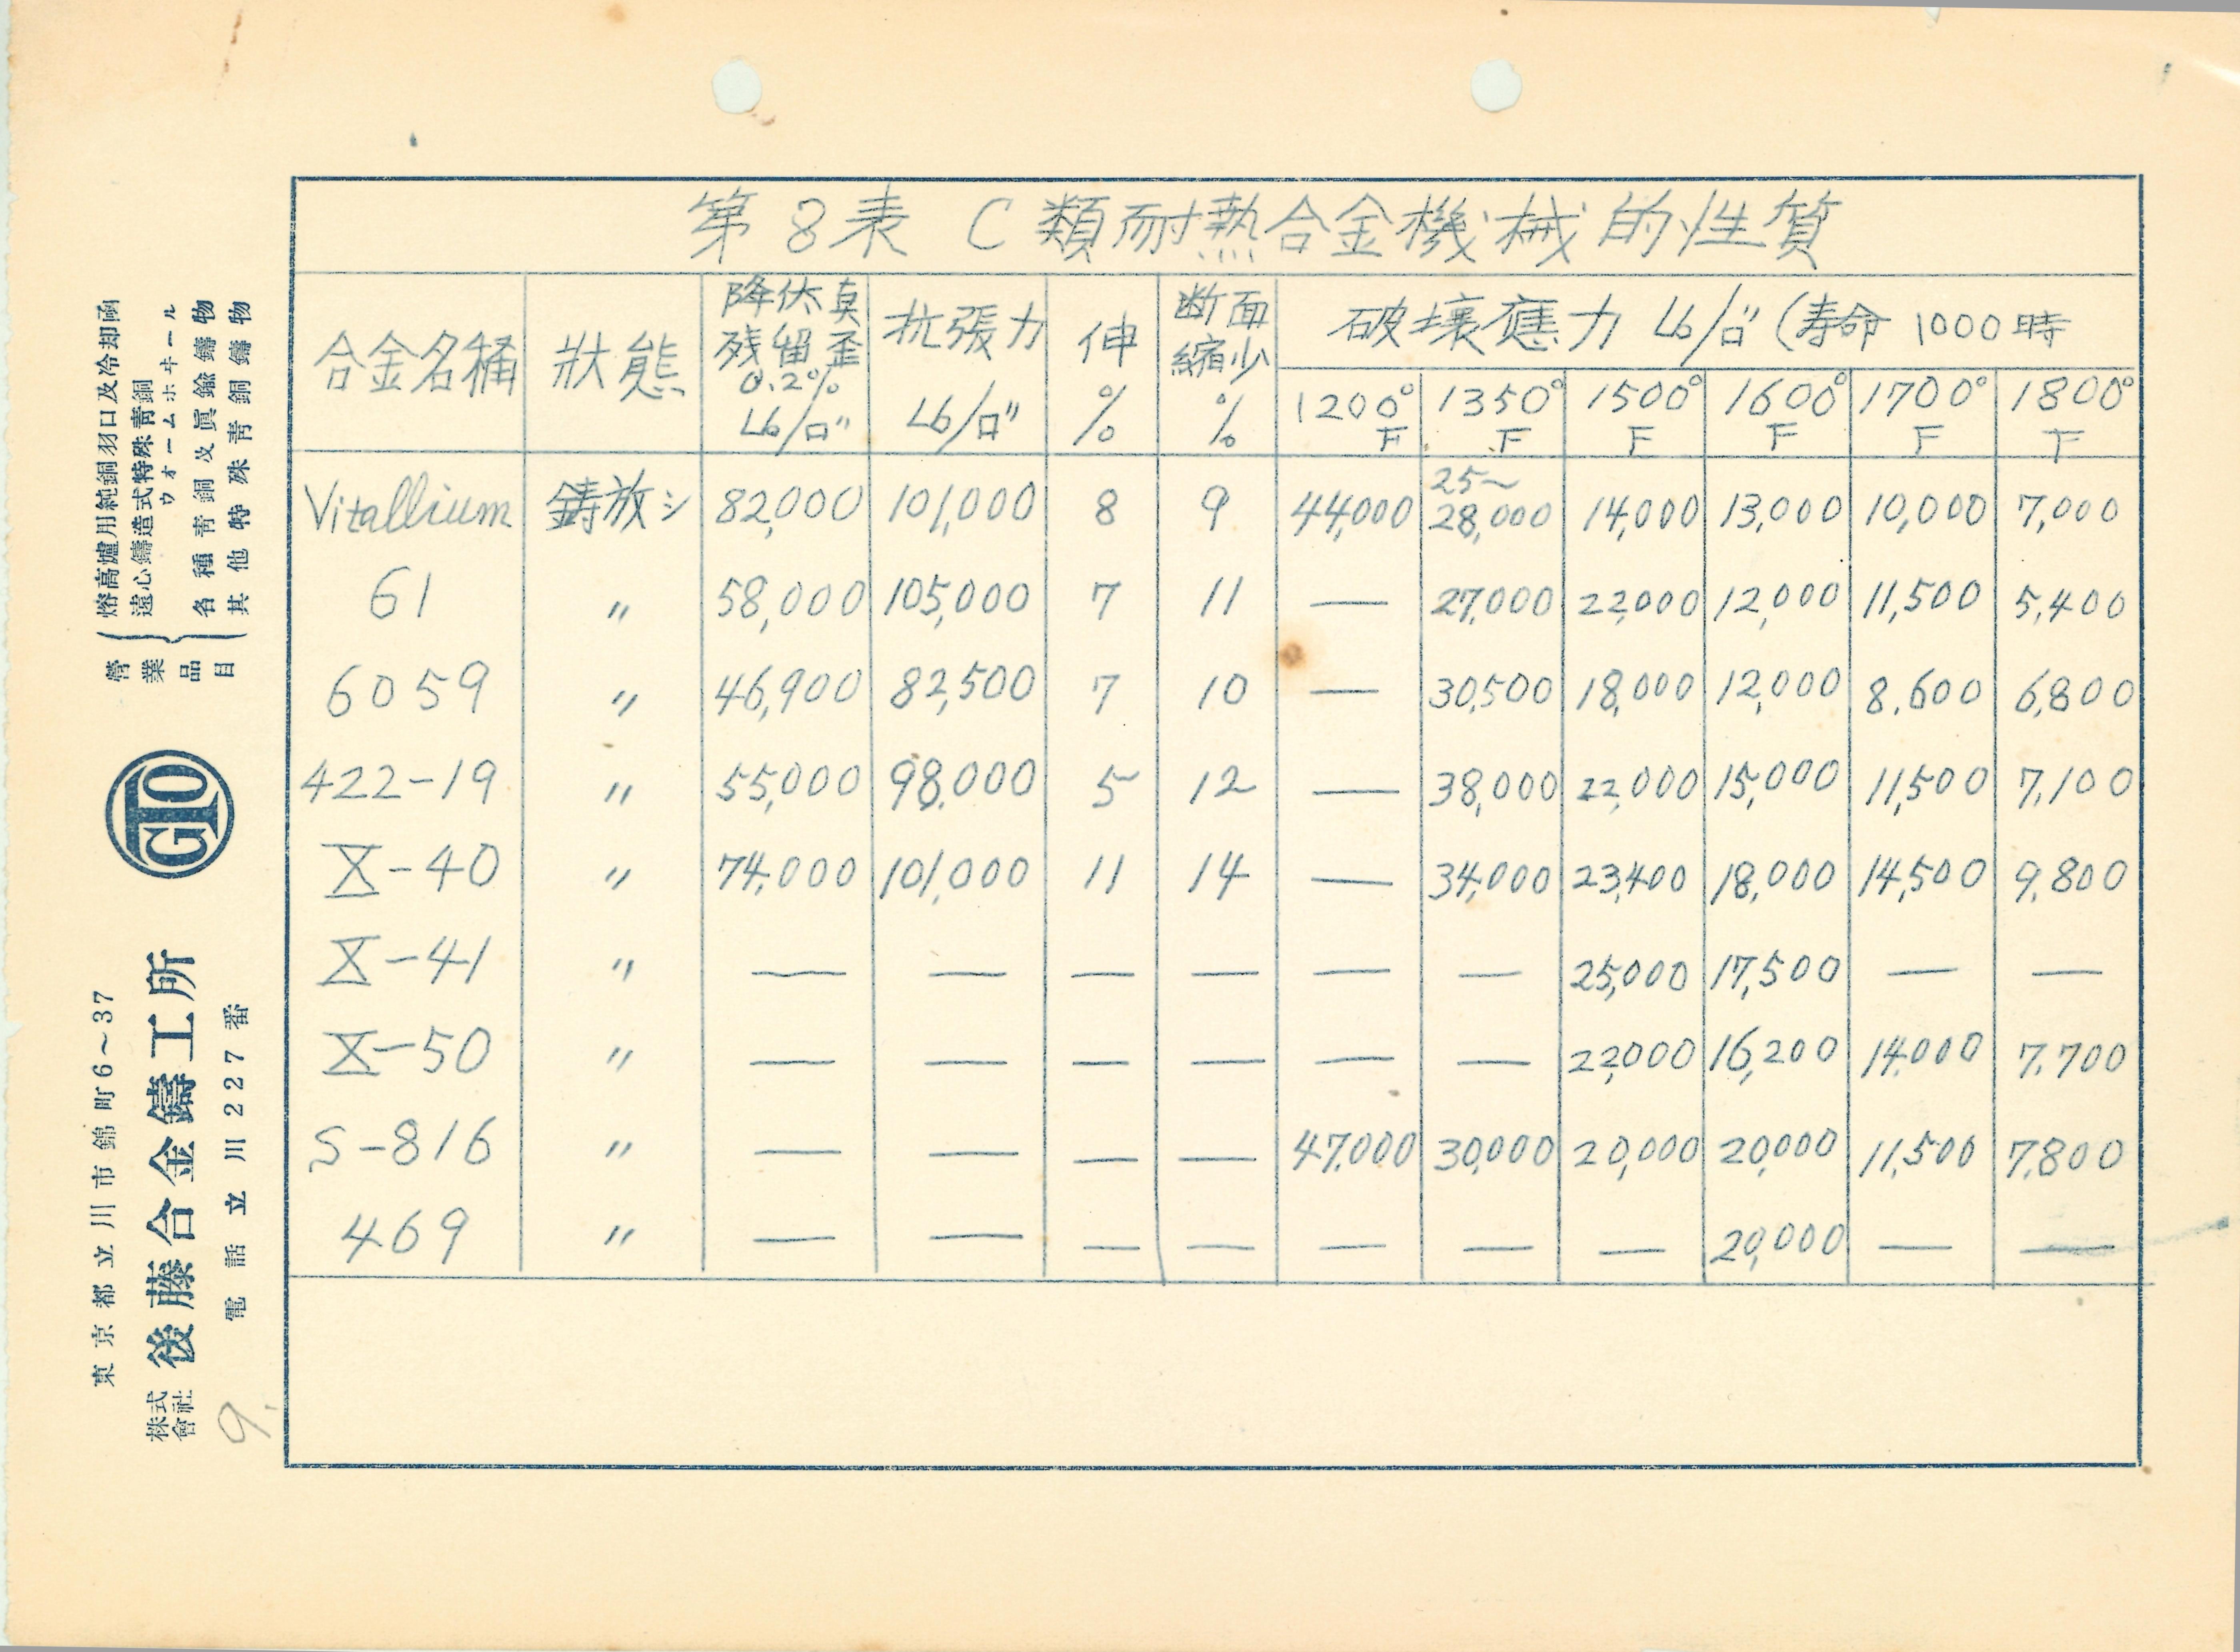 第8表 C類耐熱合金機械的性質
合金名稱 狀態 降伏点 残留歪 0.2% Lb/□" 抗張力 Lb/□" 伸 % 断面縮少 % 破壊應力 Lb/□" (寿命 1000時
1200°F 1350°F 1500°F 1600°F 1700°F 1800°F
Vitallium 鋳放シ 82,000 101,000 8 9 44,000 25~28,000 14,000 13,000 10,000 7,000
61 〃 58,000 105,000 7 11 — 27,000 22,000 12,000 11,500 5,400
6059 〃 46,900 82,500 7 10 — 30,500 18,000 12,000 8,600 6,800
422-19 〃 55,000 98,000 5 12 — 38,000 22,000 15,000 11,500 7,100
X-40 〃 74,000 101,000 11 14 — 34,000 23,400 18,000 14,500 9,800
X-41 〃 — — — — — — 25,000 17,500 — —
X-50 〃 — — — — — — 22,000 16,200 14,000 7,700
S-816 〃 — — — — 47,000 30,000 20,000 20,000 11,500 7,800
469 〃 — — — — — — — 20,000 — —
東京都立川市錦町6~37
株式會社 後藤合金鑄工所
電話 立川227番
GTO
營業品目
熔高爐用純銅羽口及冷却函
遠心鑄造式特殊靑銅
ウオームホヰール
各種靑銅及眞鍮鑄物
其他特殊靑銅鑄物
9.